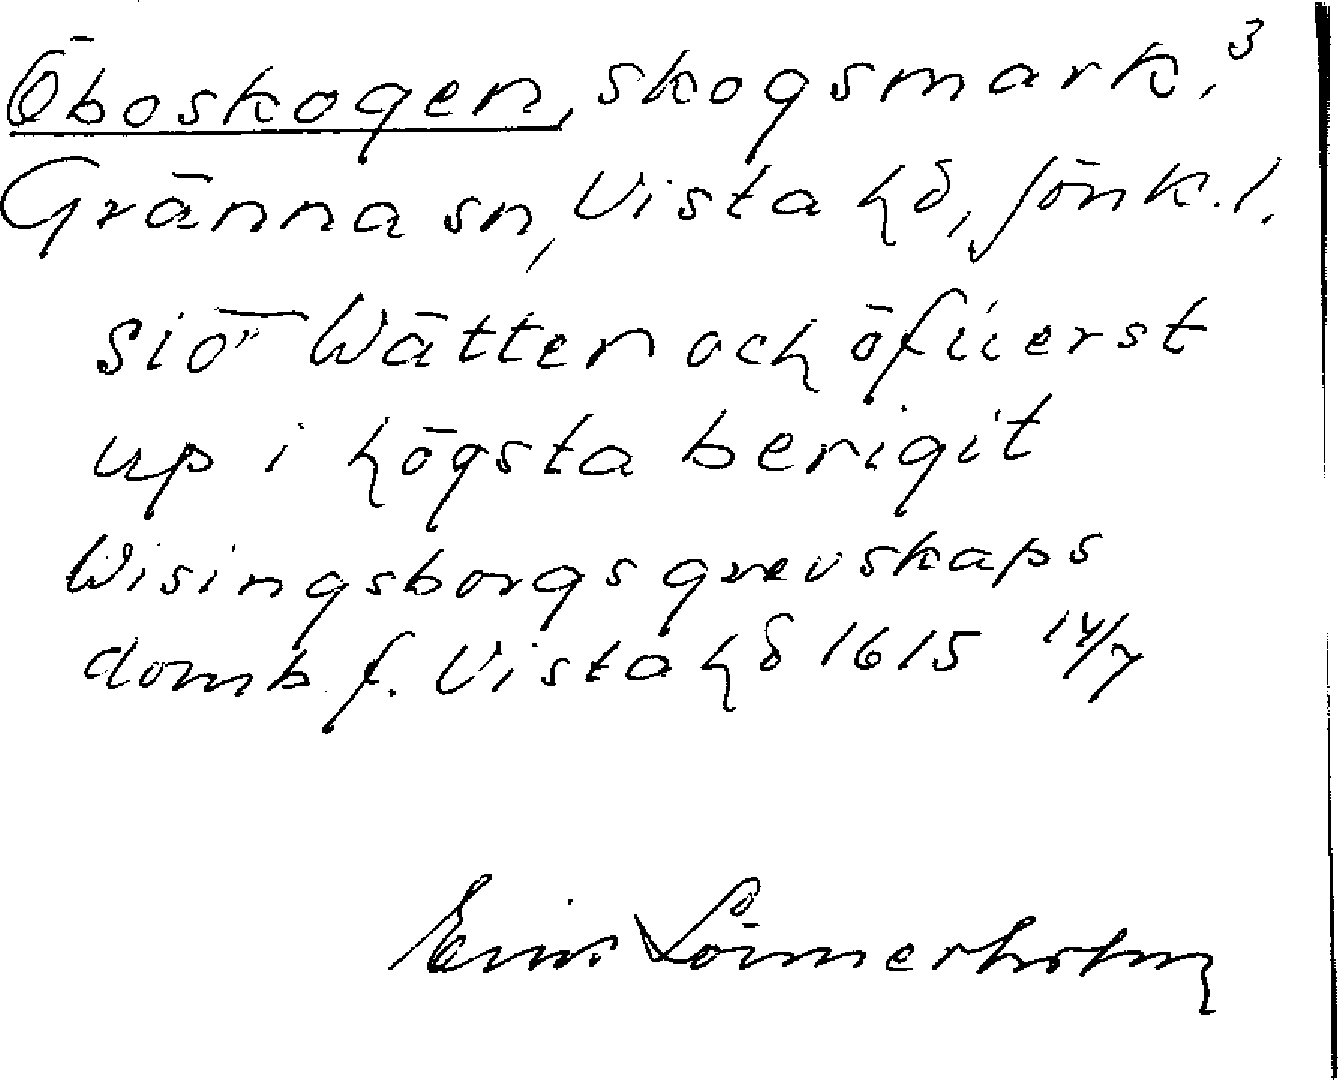 Öboskogen, skogsmark, 3
Gränna sn, Vista hd, Jönk. l.
siö Wätter och öfuerst
up i högsta berigit
Wisingsborgs grevskaps
domb f. Vista hd 1615 14/7